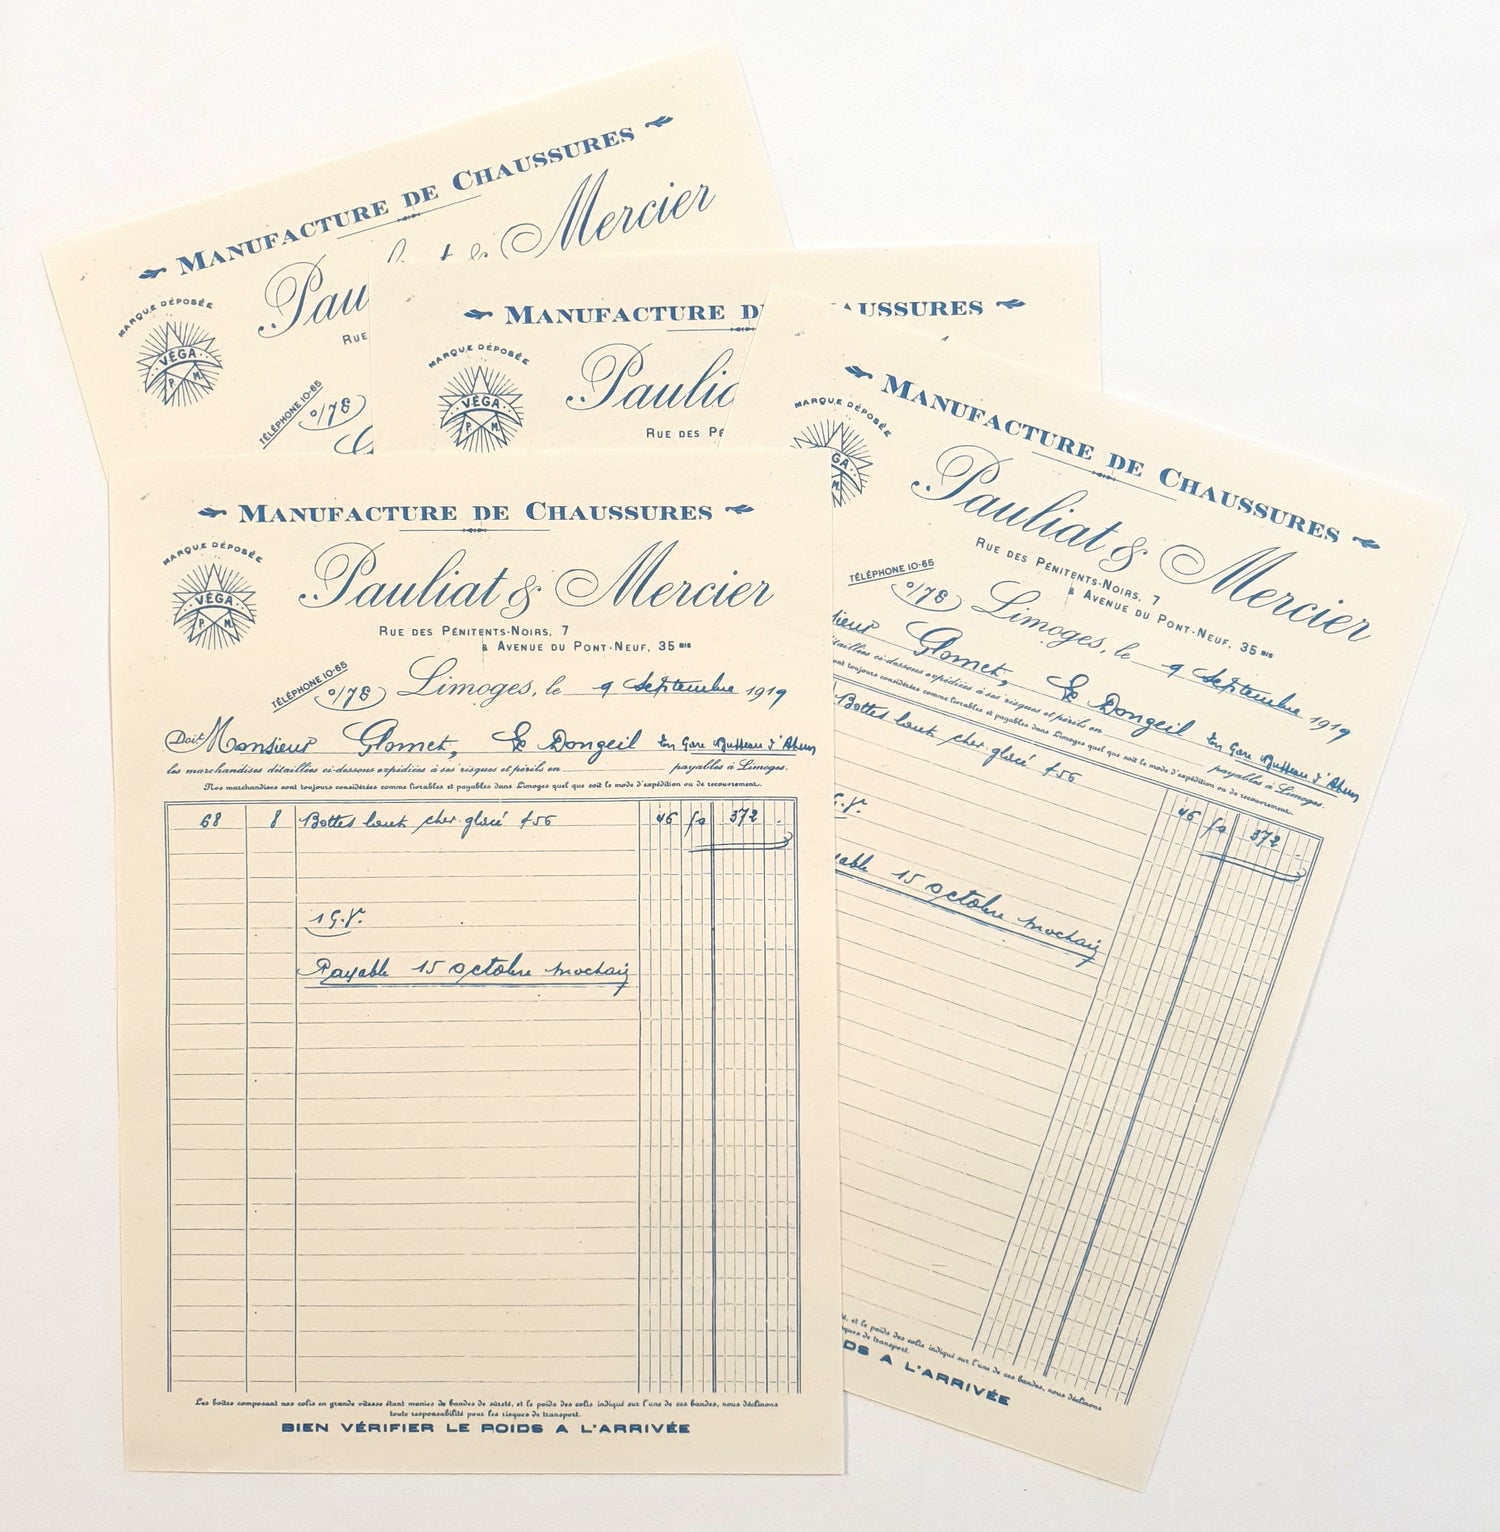 MANUFACTURE DE CHAUSSURES
Mercier
Pau
MARQUE DÉPOSÉE
VÉGA
P. M.
RUE
TÉLÉPHONE 10-65
0/78
MANUFACTURE D
AUSSURES
MARQUE DÉPOSÉE
VÉGA
P. M.
Paulia
RUE DES PÉ
MANUFACTURE DE CHAUSSURES
MARQUE DÉPOSÉE
GA
M.
Pauliat & Mercier
RUE DES PÉNITENTS-NOIRS, 7
& AVENUE DU PONT-NEUF, 35 BIS
TÉLÉPHONE 10-65
0/78
Limoges, le 9 Septembre 1919
sieur Glomet,
taillées ci-dessous expédiées à ses risques et périls en payables à Limoges.
ont toujours considérées comme livrables et payables dans Limoges quel que soit le mode d'expédition ou de recouvrement.
Bottes
46 372
G.V.
able 15 octobre prochain
, et le poids des colis indiqué sur l'une de ces bandes, nous déclinons
risques de transport.
OIDS A L'ARRIVÉE
MANUFACTURE DE CHAUSSURES
MARQUE DÉPOSÉE
VÉGA
P. M.
Pauliat & Mercier
RUE DES PÉNITENTS-NOIRS, 7
& AVENUE DU PONT-NEUF, 35 BIS
TÉLÉPHONE 10-65
0/78
Limoges, le 9 Septembre 1919
Doit Monsieur Glomet, En Gare
les marchandises détaillées ci-dessous expédiées à ses risques et périls en payables à Limoges.
Nos marchandises sont toujours considérées comme livrables et payables dans Limoges quel que soit le mode d'expédition ou de recouvrement.
68 8 Bottes 46 372
1 G.V.
Payable 15 octobre prochain
Les boîtes composant nos colis en grande vitesse étant munies de bandes de sûreté, et le poids des colis indiqué sur l'une de ces bandes, nous déclinons
toute responsabilité pour les risques de transport.
BIEN VÉRIFIER LE POIDS A L'ARRIVÉE